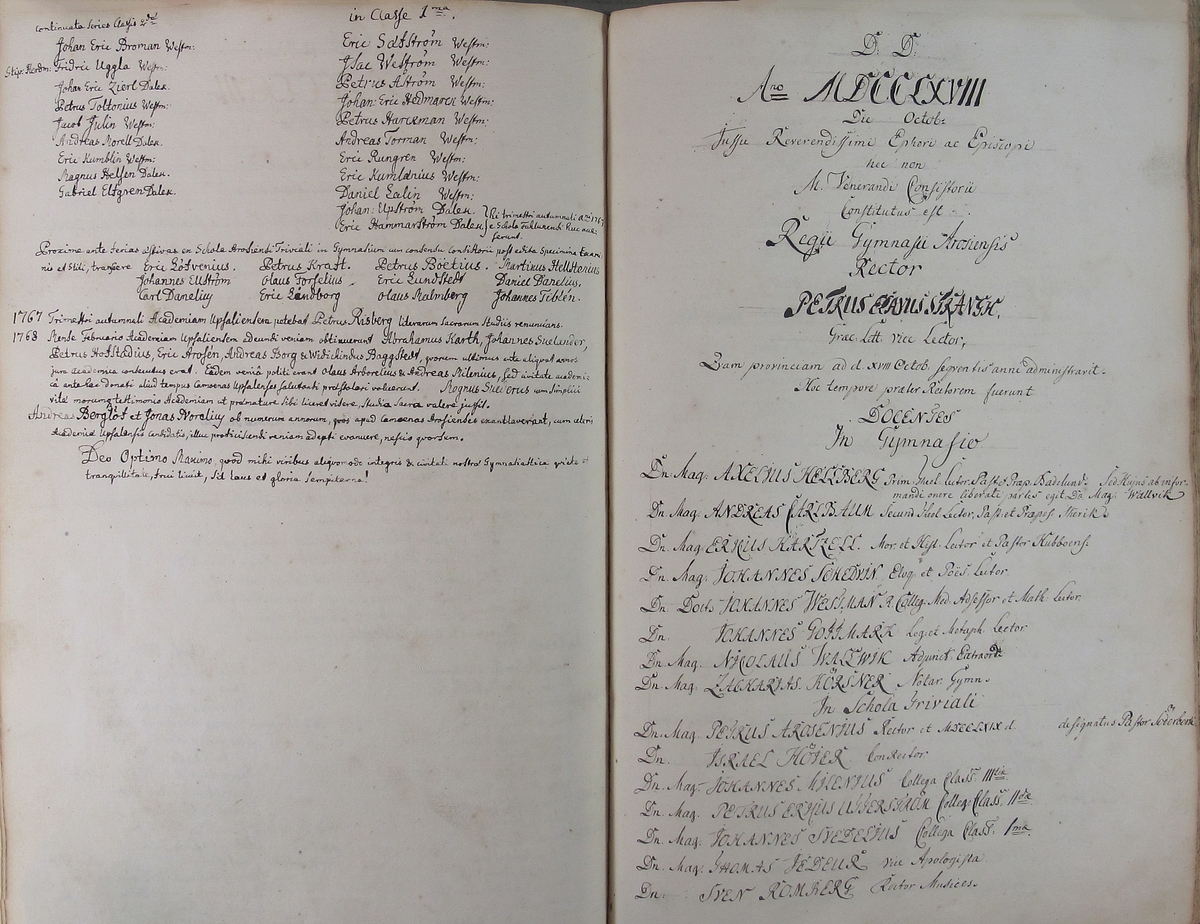 Continuata Series Classis 2dæ
Johan Eric Broman Westm:
Stip: Fridric Uggla Westm:
Johan Eric Zierl Dalek.
Petrus Toltonius Westm:
Jacob Julin Westm:
Andreas Morell Dalek.
Eric Kumblin Westm:
Magnus Dalek.
Gabriel Elfgren Dalek.
in Classe 1ma.
Eric Säfström Westm:
Isac Weström Westm:
Petrus Åström Westm:
Johan: Eric Hedmarck Westm:
Petrus Harckman Westm:
Andreas Torman Westm:
Eric Rungren Westm:
Eric Kumlænius Westm:
Daniel Lalin Westm:
Johan: Upström Dalek. hi trimestri autumnali
Eric Hammarström Dalek. e Schola huc
ferunt.
Proxime ante ferias æstivas ex Schola Arosiensi Triviali in Gymnasium cum consensu Consistorii post edita Specimina Exami-
nis et Stili, transiere Eric Löfvenius. Petrus Kraft. Petrus Boëtius. Martinus Hellstenius
Johannes Ellström Olaus Torselius. Eric Lundstedt Daniel Danelius,
Carl Daneliuy Eric Lindborg Olaus Malmberg Johannes Tiblén.
1767 Trimestri autumnali Academiam Upsaliensem petebat Petrus Risberg literarum sacrarum studiis renuncians.
1768 Mense Februario Academiam Upsaliensem adeundi veniam obtinuerunt Abrahamus Karth, Johannes Suelander,
Petrus Hofstadius, Eric Arosén, Andreas Borg & Widichindus Baggstedt, quorum ultimus ante aliquot annos
jura academica consecutus erat. Eadem venia potiti erant Olaus Arborelius & Andreas Milenius, sed civitate academi-
cà ante hac donati aliud tempus Camoenas Upsalenses salutandi præstolari voluerunt. Magnus Suecerus cum simplici
vitæ morumque testimonio Academiam ut præmature sibi liceret videre, studia sacra valere jussit.
Andreas Berglöf et Jonas Noreliuy ob numerum annorum, quos apud Camoenas Arosienses exantlaverant, cum
Academiæ Upsalensis candidatis, illuc proficiscendi veniam adepti evanuere, nescio quorsum.
Deo Optimo Maximo, quod mihi viribus aliquomodo integris & civitate nostra Gymnasiastica quiete et
tranquillitate, frui licuit, sit laus et gloria sempiterna!
D: D:
Ano MDCCLXVIII
Die Octob:
Jussu Reverendissimi Ephori ac Episcopi
nec non
M. Venerandi Consistorii
Constitutus est
Regii Gymnasii Arosiensis
Rector
PETRUS STRANGH.
Græc. Litt. vice Lector,
Quam provinciam ad d. XVIII Octob. sequentis anni administravit.
Hoc tempore præter Rectorem fuerunt
DOCENTES
In Gymnasio
Dn. Mag: AXELIUS HELLBERG Prim. Theol. Lector. Past. et Præp. Badelund. Sed Hujus ab infor-
mandi onere liberati partes egit Dn. Mag. Wallvik
Dn Mag: ANDREAS CARLBAUM Secund Theol Lector, Past: et Præpos.
Dn. Mag: ERICUS HARTZELL. Mor. et Hist. Lector et Pastor Hubboens.
Dn. Mag: JOHANNES SCHEDVIN Eloq. et Poës. Lector.
Dn. Doct: JOHANNES WESSMAN R. Colleg. Med. Adsessor et Math. Lector
Dn. JOHANNES GOTTMARK Log. et Metaph Lector
Dn. Mag. NICOLAUS WALLWIK Adjunct. Extraord:
Dn. Mag: ZACHARIAS. HÖRSNER Notar. Gymn.
In Schola Triviali
Dn. Mag: PETRUS AROSENIUS Rector et MDCCLXIX d. designatus Pastor Söderberk
Dn. ISRAEL HÖIJER ConRector
Dn. Mag: JOHANNES MILENIUS Collega Class: IIItiæ
Dn. Mag. PETRUS ERICUS UPPERSTRÖM Colleg. Class. IIdæ
Dn. Mag: JOHANNES SVEDELIUS Collega Class. 1mæ.
Dn. Mag: THOMAS TEDEUR vice Apologista.
Dn. SVEN ROMBERG Rector Musices.